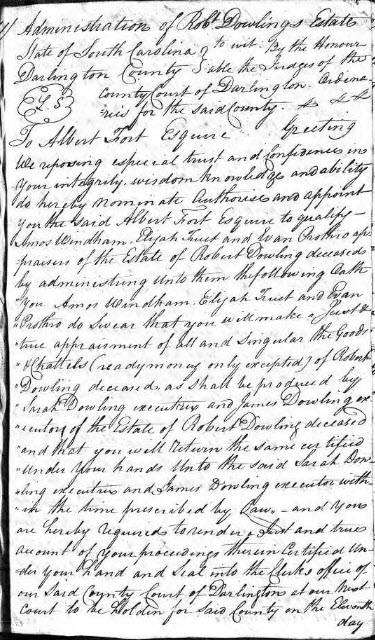 Administration of Robt Dowlings Estate
State of South Carolina } to wit. By the Honour
Darlington County } able the Judges of the
County Court of Darlington. Ordina
L,S ries for the said County. & & &
To Albert Fort Esquire Greeting
We reposing especial trust and Confidence in
Your integrity, wisdom knowledge and ability
do hereby nominate Authorise and appoint
you the said Albert Fort Esquire to qualify
Amos Windham, Elijah Trust and Evan Prothro ap
praisers of the Estate of Robert Dowling deceased
by administring Unto them the following Oath
You Amos Windham, Elijah Trust and Evan
Prothro do Swear that you will make a Just &
true appraisment of all and Singular the Goods
& Chattels (ready money only excepted) of Robert
Dowling deceased as shall be produced by
Sarah Dowling executrix and James Dowling ex
ecutors of the Estate of Robert Dowling deceased
and that you will return the same certified
Under Your hands Unto the said Sarah Dow
ling executrix and James Dowling executor with
in the time prescribed by Law. - and you
are hereby required to render a Just and true
acount of Your proceedings therein Certified Un
der Your hand and Seal into the Clerks office of
our Said County Court of Darlington at our Next
Court to be Holden for Said County on the Eleventh
day